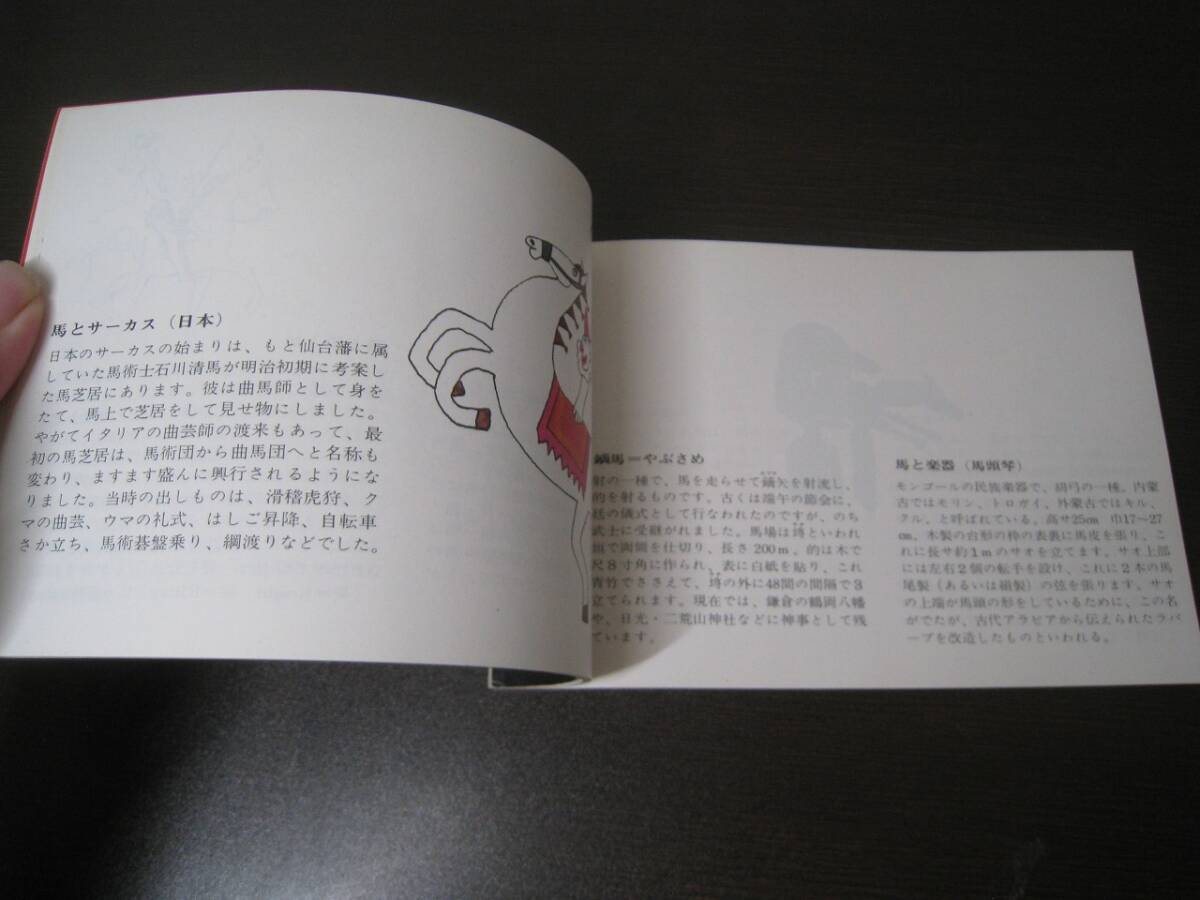 馬とサーカス（日本）
日本のサーカスの始まりは、もと仙台藩に属
していた馬術士石川清馬が明治初期に考案し
た馬芝居にあります。彼は曲馬師として身を
たて、馬上で芝居をして見せ物にしました。
やがてイタリアの曲芸師の渡来もあって、最
初の馬芝居は、馬術団から曲馬団へと名称も
変わり、ますます盛んに興行されるようにな
りました。当時の出しものは、滑稽虎狩、ク
マの曲芸、ウマの礼式、はしご昇降、自転車
さか立ち、馬術碁盤乗り、綱渡りなどでした。
鏑馬＝やぶさめ
射の一種で、馬を走らせて鏑矢を射流し、
的を射るものです。古くは端午の節会に、
廷の儀式として行なわれたのですが、のち
武士に受継がれました。馬場は埒といわれ
垣で両側を仕切り、長さ200m。的は木で
尺8寸角に作られ、表に白紙を貼り、これ
青竹でささえて、埒の外に48間の間隔で3
立てられます。現在では、鎌倉の鶴岡八幡
や、日光・二荒山神社などに神事として残
ています。
馬と楽器（馬頭琴）
モンゴールの民族楽器で、胡弓の一種。内蒙
古ではモリン、トロガイ、外蒙古ではキル、
クル、と呼ばれている。高サ25cm 巾17〜27
cm。木製の台形の枠の表裏に馬皮を張り、こ
れに長サ約1mのサオを立てます。サオ上部
には左右2個の転手を設け、これに2本の馬
尾製（あるいは絹製）の弦を張ります。サオ
の上端が馬頭の形をしているために、この名
がでたが、古代アラビアから伝えられたラバ
ーブを改造したものといわれる。